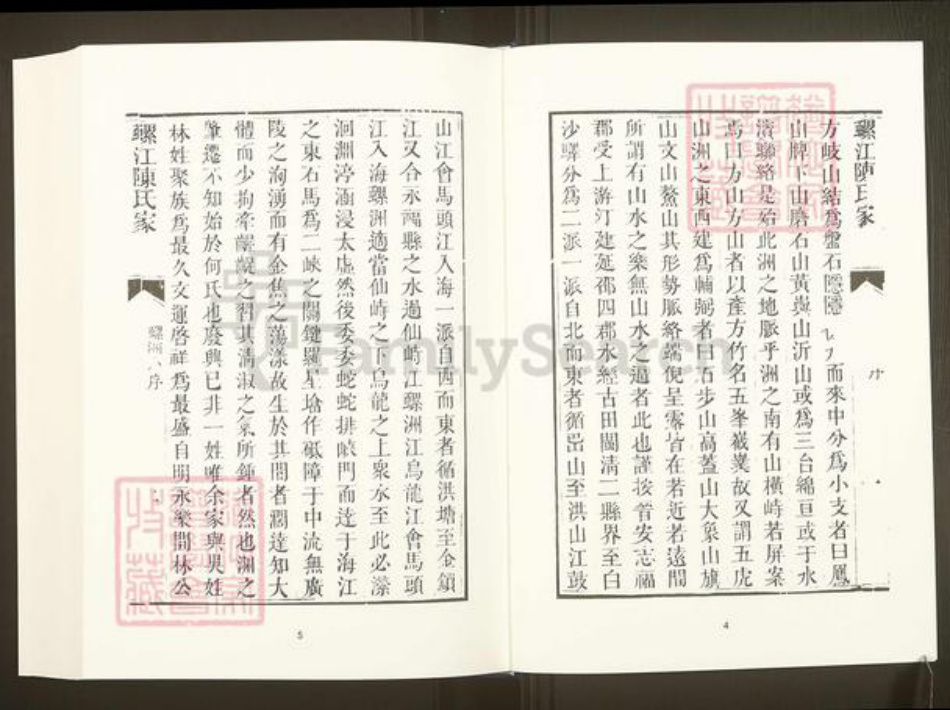 螺江陳氏家
序
方岐山結為盤石隱隱而來中分為小支者曰鳳
山牌下山磨石山黃與山沂山或為三台綿亘或于水
濱聯絡是始此洲之地脈乎洲之南有山橫峙若屏案
焉曰方山方山者以產方竹名五峯巀嶪故又謂五虎
山洲之東西建為輔弼者曰石步山高蓋山大象山旗
山文山鰲山其形勢脈絡端倪呈露皆在若近若遠間
所謂有山水之樂無山水之過者此也謹按晉安志福
郡受上游汀建延邵四郡水經古田閩清二縣界至白
沙驛分為二派一派自北而東者循嵒山至洪山江鼓
4
山江會馬頭江入海一派自西而東者循洪塘至金鎖
江又合永福縣之水過仙崎江螺洲江烏龍江會馬頭
江入海螺洲適當仙崎之下烏龍之上衆水至此必瀠
洄淵渟涵浸太虛然後委委蛇蛇排闥門而達于海江
之東石馬為二峽之關鍵羅星塔作砥障于中流無廣
陵之洶湧而有金焦之蕩漾故生於其間者濶達知大
體而少拘牽齷齪之習其清淑之氣所鍾者然也洲之
肇遷不知始於何氏也廢興已非一姓唯余家與吳姓
林姓聚族為最久文運啓祥為最盛自明永樂間林公
螺江陳氏家
螺洲 序
5
FamilySearch